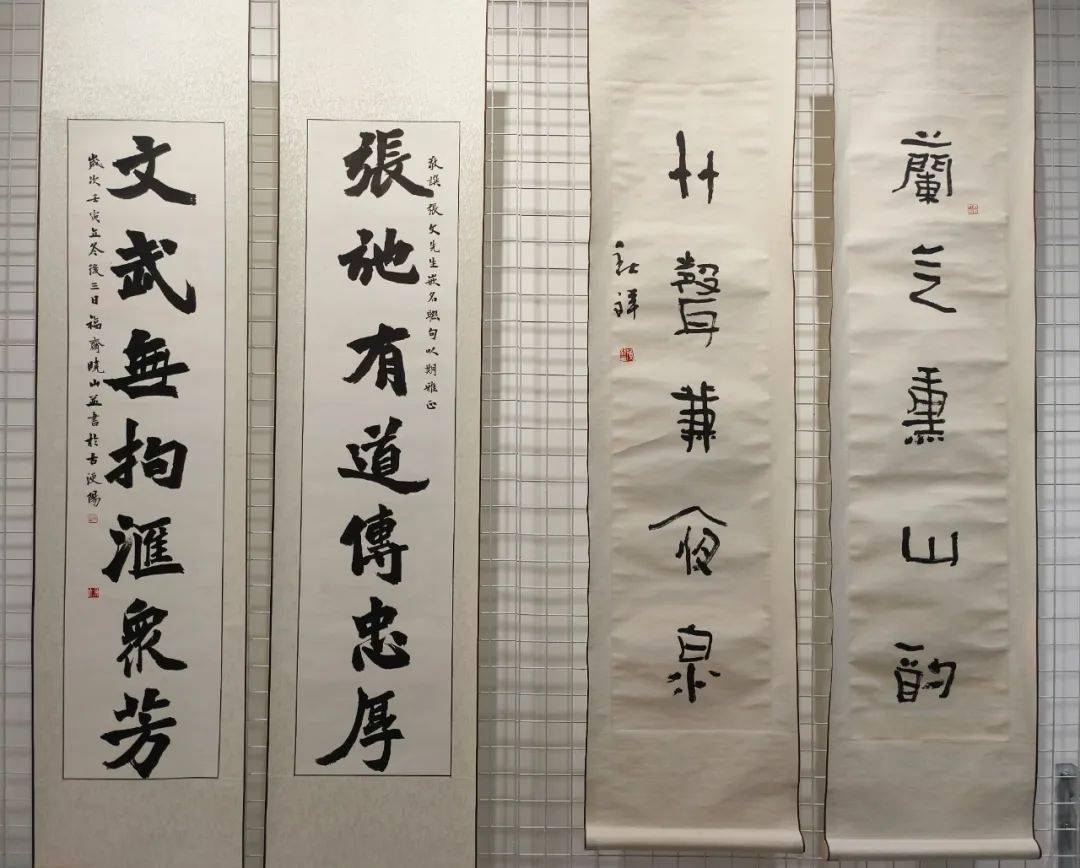 蘭气熏山酌
竹聲兼夜泉
敬撰張文先生嵌名聯句以期雅正
張弛有道傳忠厚
文武無拘滙衆芳
歲次壬寅立冬後三日福齋曉山並書於古浭陽